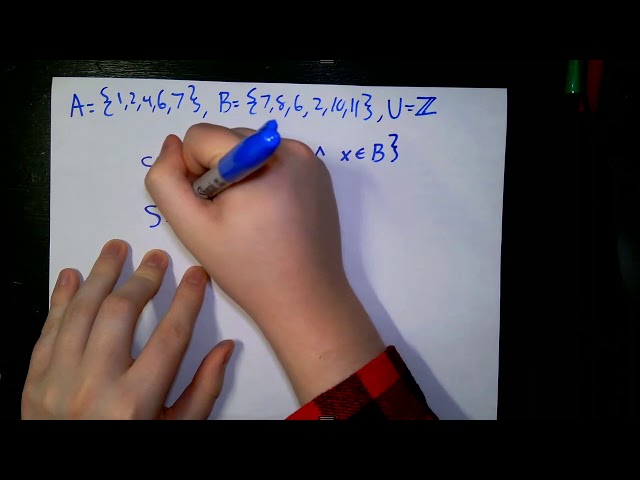 A = {1,2,4,6,7}, B = {7,8,6,2,10,11}, U = ℤ
∧ x ∈ B}
S